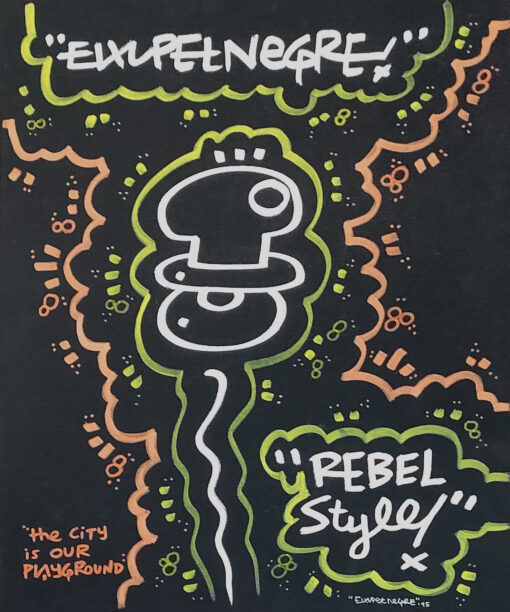 "ELXUPETNEGRE!"
"REBEL
Style!"
"the CITY
is OUR
PLAYGROUND"
"ELXUPETNEGRE"'15